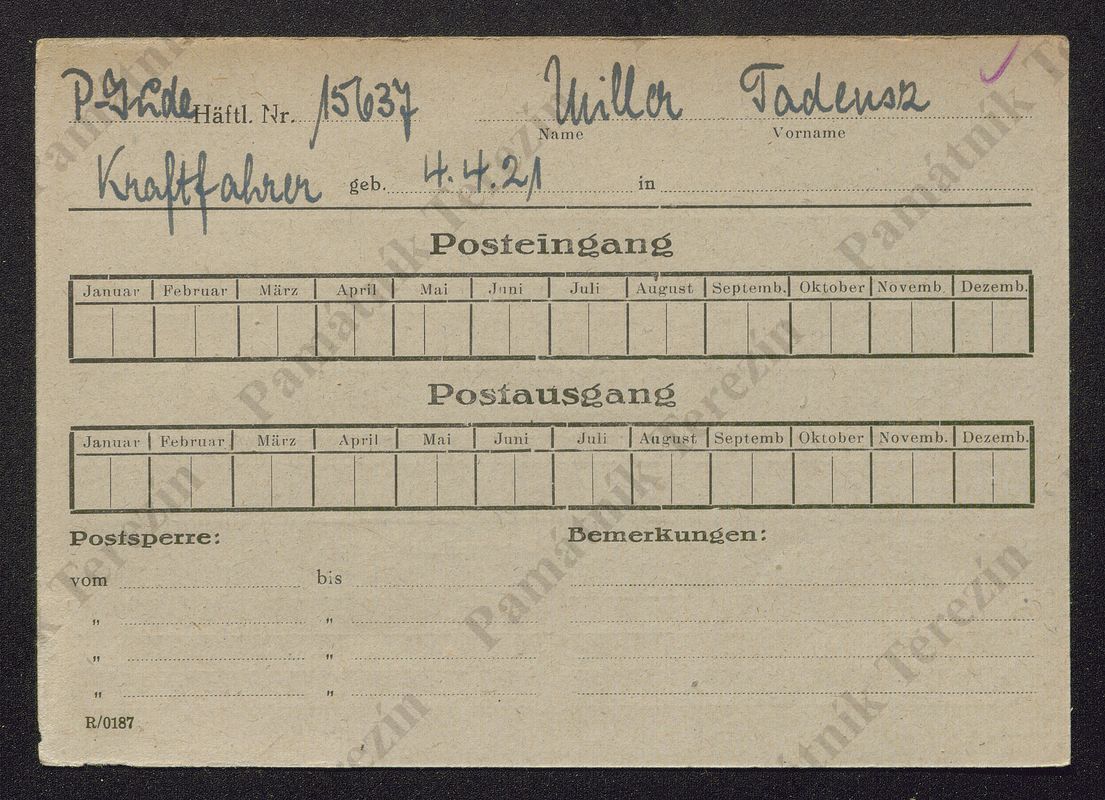 P-Jude Häftl. Nr. 15637 Miller Tadeusz
Name Vorname
Kraftfahrer geb. 4.4.21 in
Posteingang
Januar Februar März April Mai Juni Juli August Septemb. Oktober Novemb. Dezemb.
Postausgang
Januar Februar März April Mai Juni Juli August Septemb Oktober Novemb. Dezemb.
Postsperre: Bemerkungen:
vom bis
" "
" "
" "
R/0187
Památník Terezín